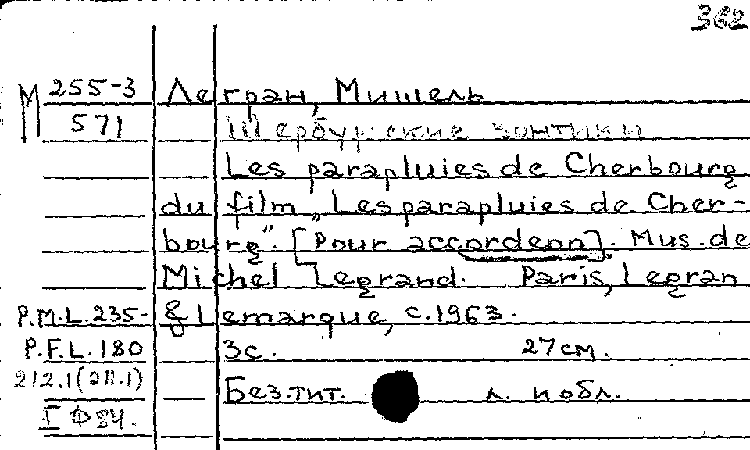 362
М 255-3 Легран, Мишель
571 Шербургские зонтики
Les parapluies de Cherbourg
du film „Les parapluies de Cher-
bourg". [Pour accordeon]. Mus. de
Michel Legrand. Paris, Legran
P.M.L.235- & Lemarque, c.1963.
P.F.L.180 3с. 27см.
212.1(211.1)
Без.тит. л. и обл.
I Ф 84.